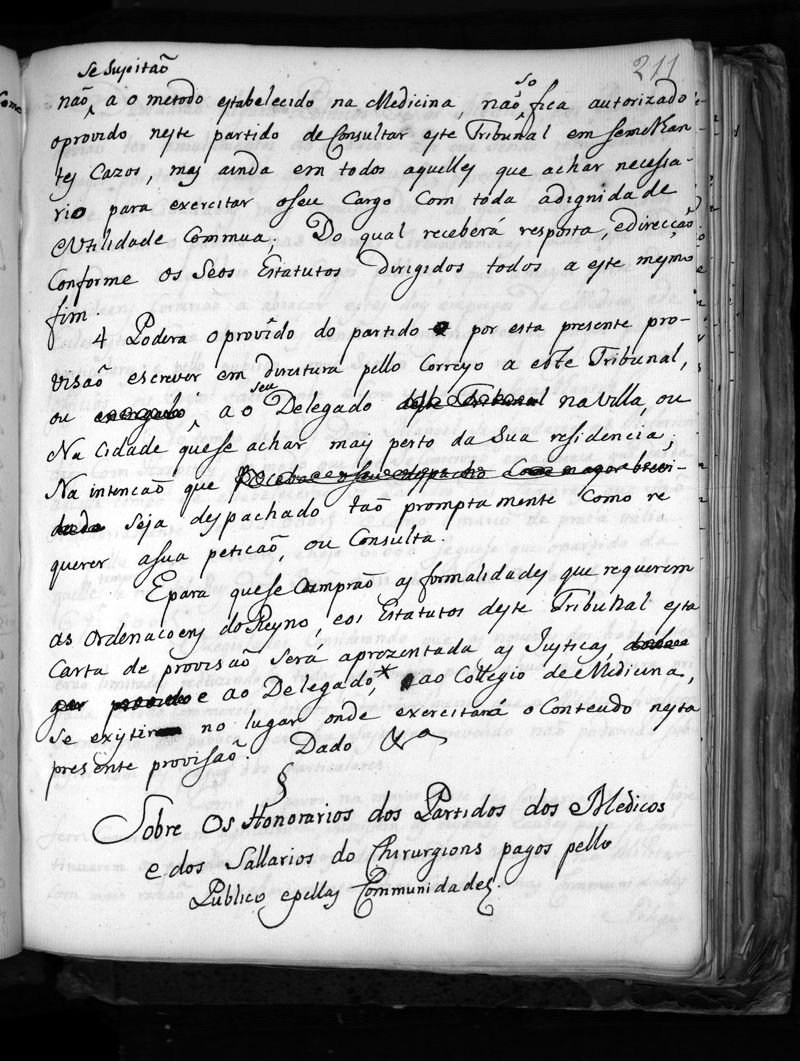 211
se sujeitaõ
naõ a o metodo establecido na Medicina, naõ so fica autorizado
o provido neste partido de Consultar este Tribunal em semelhan-
tes Cazos, mas ainda em todos aquelles que achar necessa-
rio para exercitar o seu Cargo Com toda a dignidade
e Utilidade Commua; Do qual receberá resposta, e direcçaõ
Conforme os Seos Estatutos dirigidos todos a este mesmo
fim.
4 Podera o provido do partido por esta presente pro-
visaõ escrever em direitura pello Correyo a este Tribunal,
ou a o seu Delegado deste Tribunal na Villa, ou
Na Cidade que se achar mais perto da Sua residencia;
Na intencaõ que Receba o seu despacho Com a mayor brevi-
dade seja despachado taõ promptamente Como re
querer a sua peticaõ, ou Consulta.
E para que se Cumpraõ as formalidades que requerem
as Ordenacoens do Reyno, e os Estatutos deste Tribunal esta
Carta de provisaõ Será aprezentada as Justiças,
e ao Delegado,* ao Collegio de Medicina,
se existir no lugar onde exercitará o Conteudo nesta
presente provisaõ. Dado &a
§
Sobre Os Honorarios dos Partidos dos Medicos
e dos Sallarios do Chirurgions pagos pello
Publico e pellas Communidades.